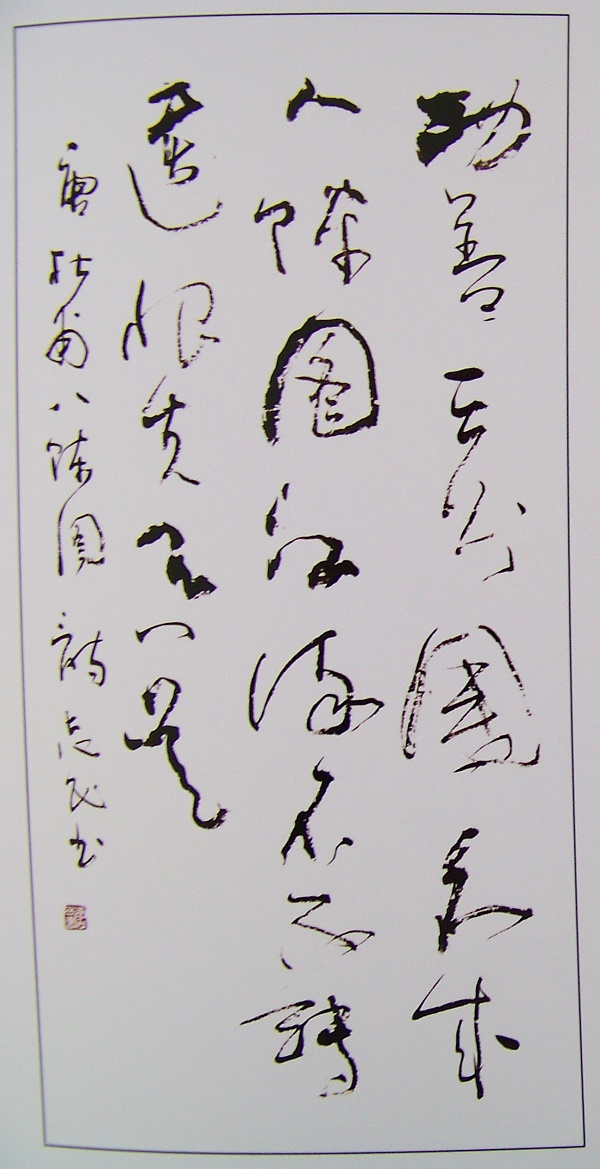 功蓋三分國名成
八陣圖江流石不轉
遺恨失吞吳
唐杜甫八陣圖詩志民书